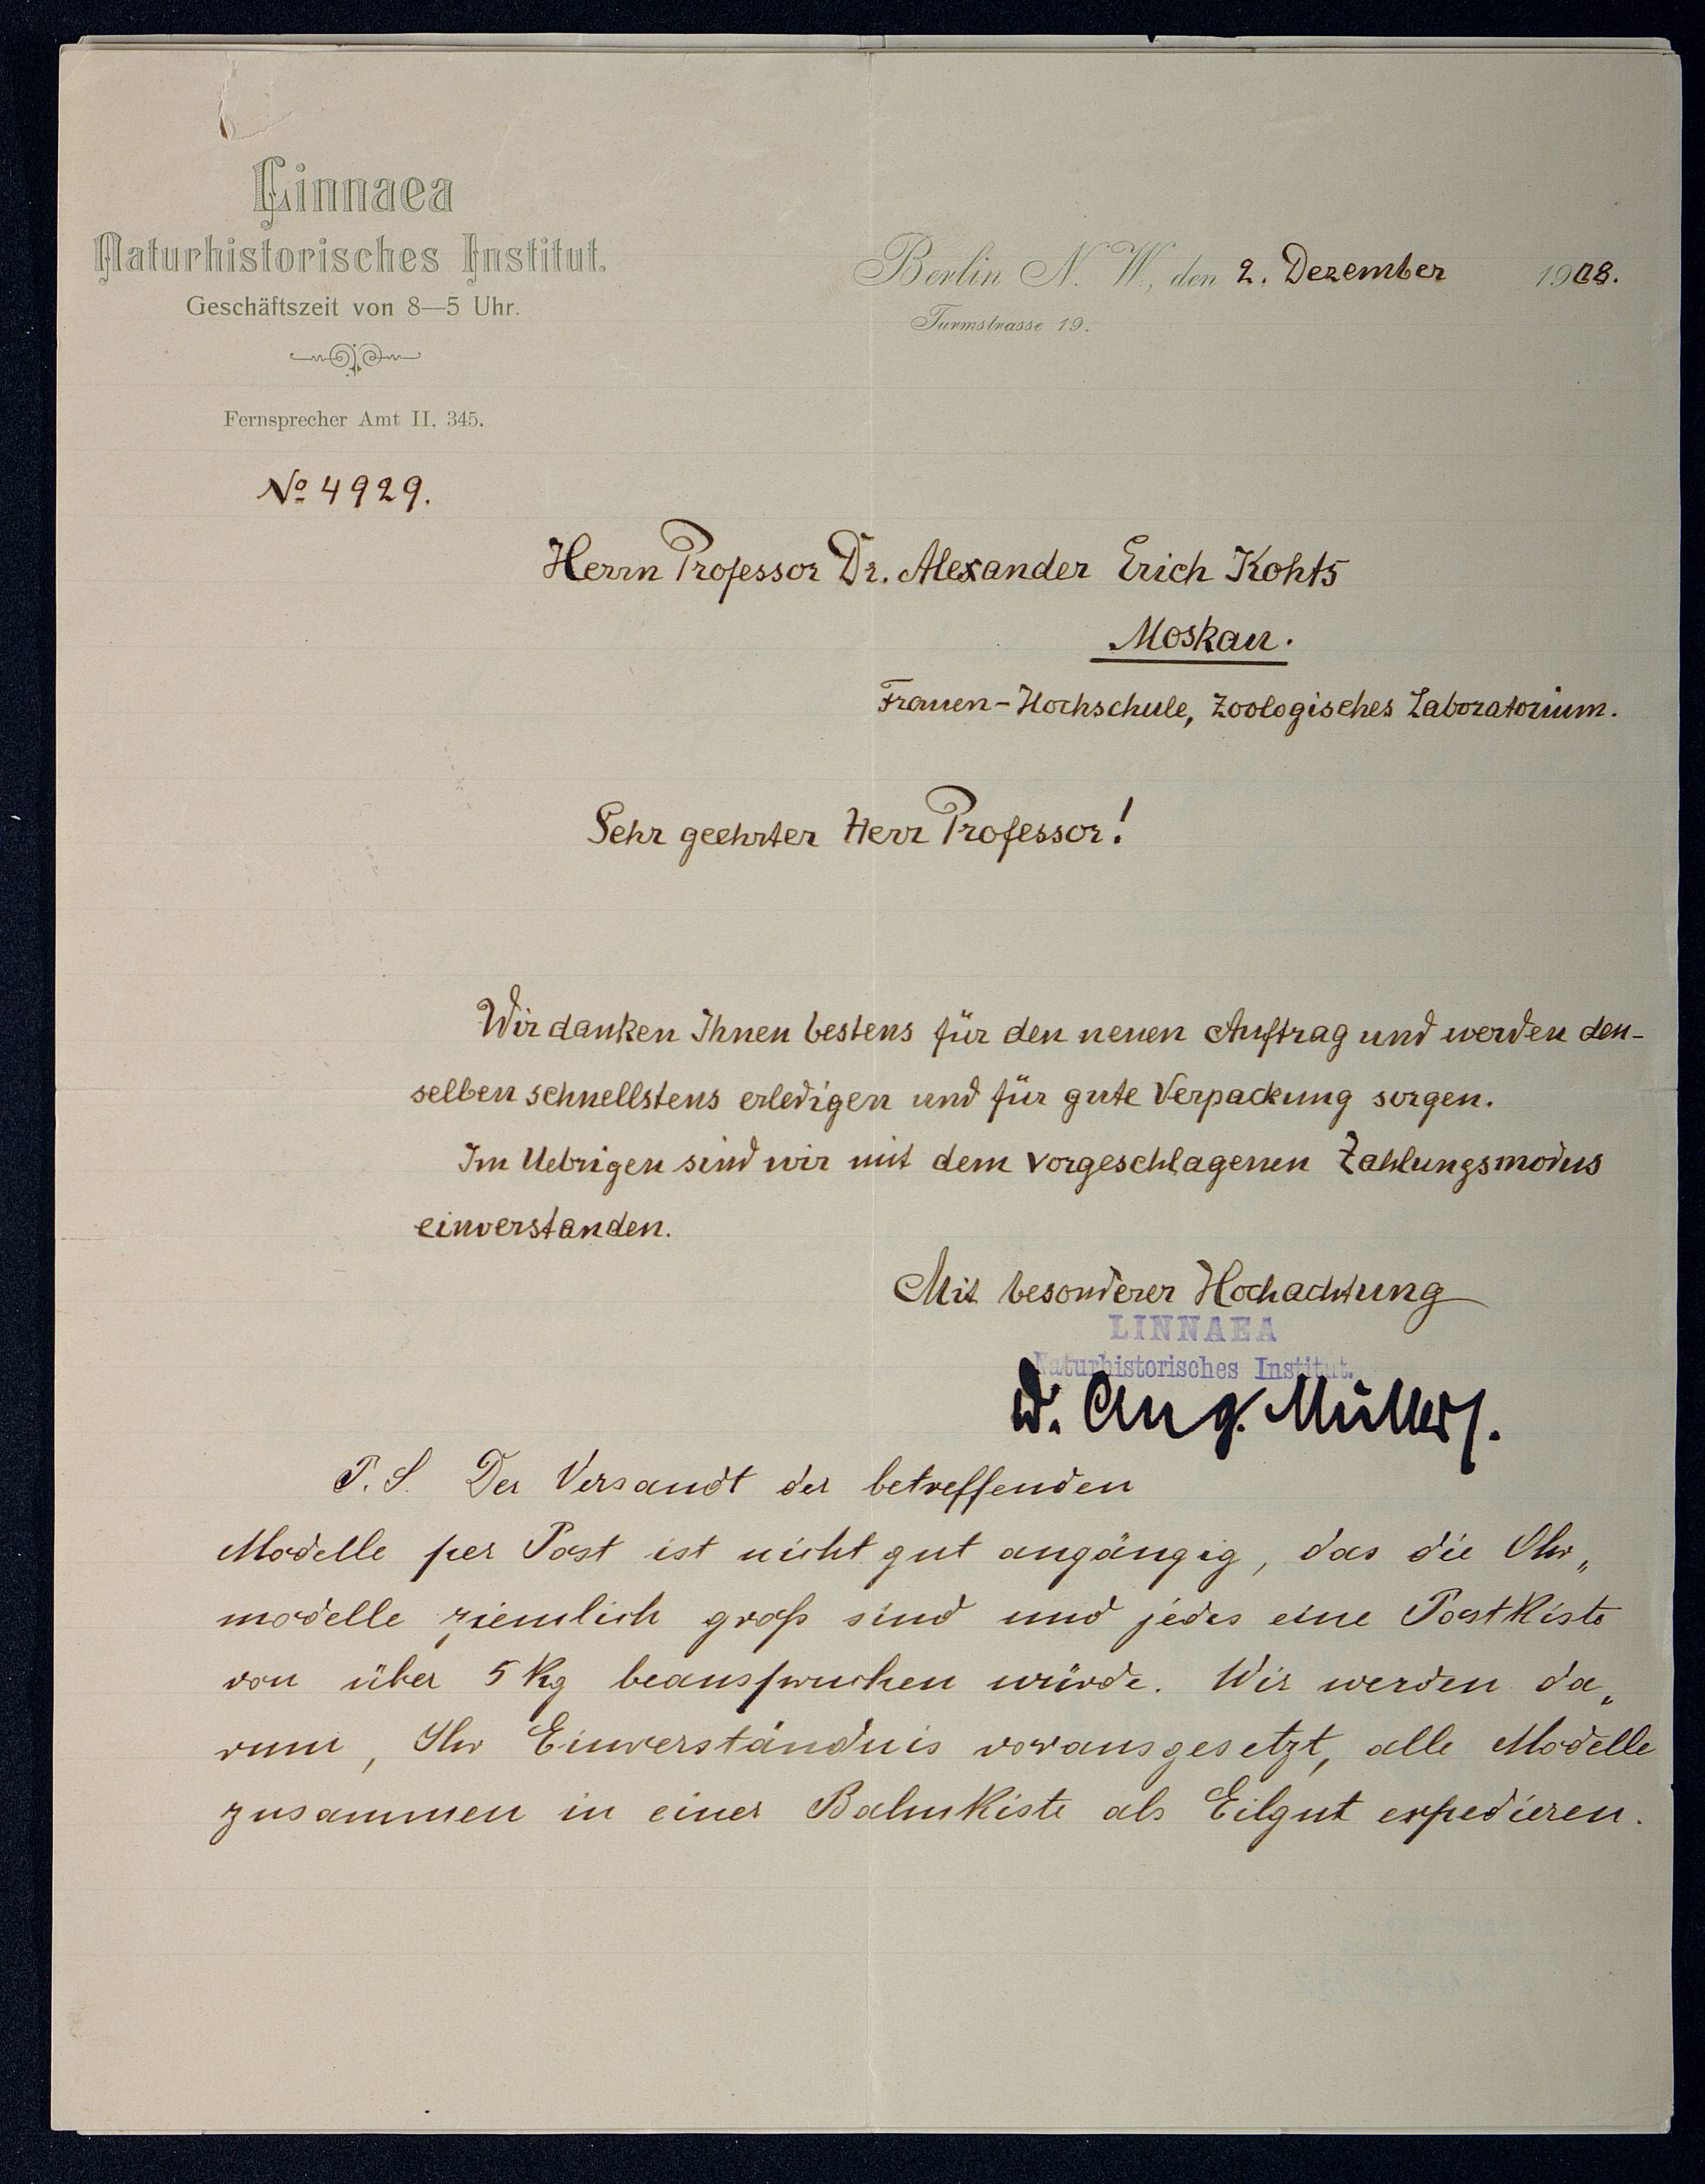 Linnaea
Naturhistorisches Institut.
Geschäftszeit von 8—5 Uhr.
Fernsprecher Amt II, 345.
Berlin N. W., den 2. Dezember 1908.
Turmstrasse 19.
No 4929.
Herrn Professor Dr. Alexander Erich Kohts
Moskau.
Frauen-Hochschule, Zoologisches Laboratorium.
Sehr geehrter Herr Professor!
Wir danken Ihnen bestens für den neuen Auftrag und werden den-
selben schnellstens erledigen und für gute Verpackung sorgen.
Im Uebrigen sind wir mit dem vorgeschlagenen Zahlungsmodus
einverstanden.
Mit besonderer Hochachtung
LINNAEA
Naturhistorisches Institut.
Dr. Aug. Müller.
P. S. Der Versandt der betreffenden
Modelle per Post ist nicht gut angängig, das die Ohr„
modelle ziemlich groß sind und jedes eine Postkiste
von über 5 kg beanspruchen würde. Wir werden da„
rum, Ihr Einverständnis vorausgesetzt, alle Modelle
zusammen in einer Bahnkiste als Eilgut expedieren.